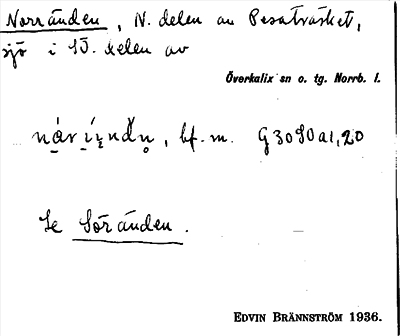 Norränden, N. delen av Pesaträsket,
sjö i SÖ. delen av
Överkalix sn o. tg. Norrb. l.
bf. m. G3090a1,20
Se Söränden.
EDVIN BRÄNNSTRÖM 1936.